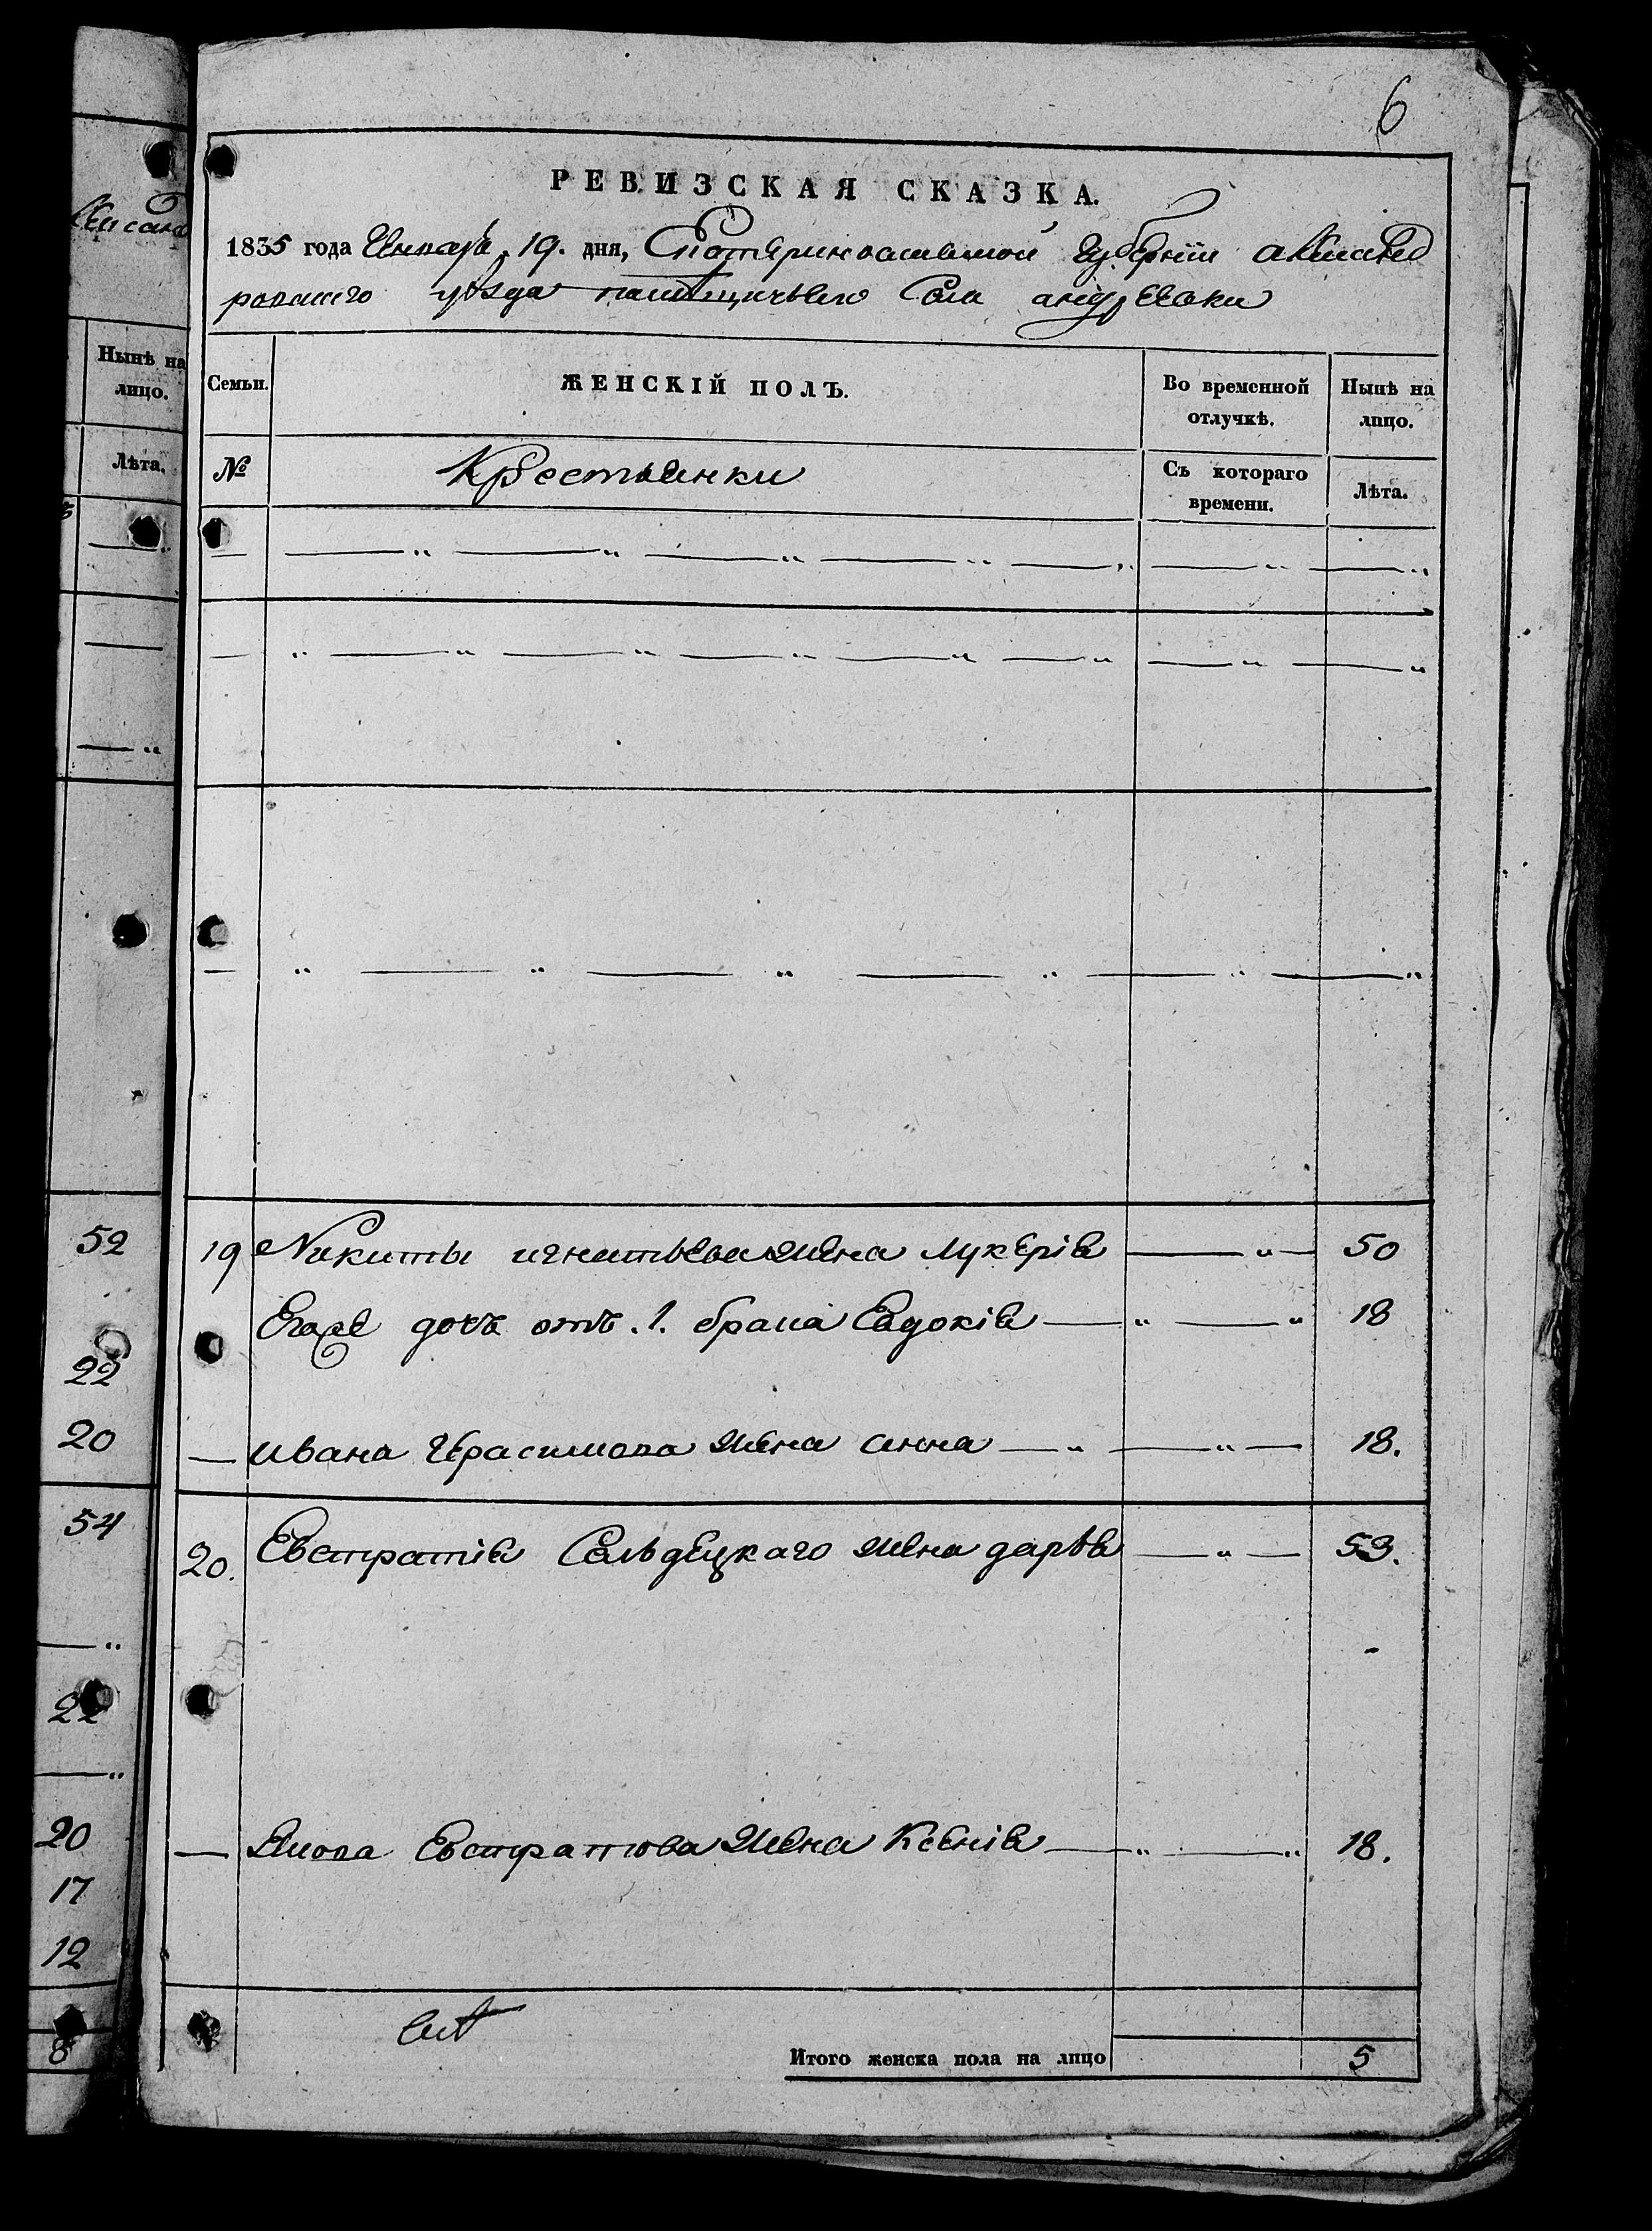 6
РЕВИЗСКАЯ СКАЗКА.
1835 года Генваря 19. дня, Екатеринославской Губерніи александ
ровскаго уѣзда помѣщичьего Села андреевки
Семьи. ЖЕНСКІЙ ПОЛЪ. Во временной отлучкѣ. Нынѣ на лицо.
№ Крестьянки Съ котораго времени. Лѣта.
19 Никиты игнатьева жена лукерія 50
Его дочь отъ .1. брака Евдокія 18
ивана Герасимова жена анна 18.
20. Евстратія Сельдецкаго жена дарья 53.
Якова Евстратова жена Ксенія 18.
Итого женска пола на лицо 5
Нынѣ на лицо.
Лѣта.
52
22
20
54
22
20
17
12
8